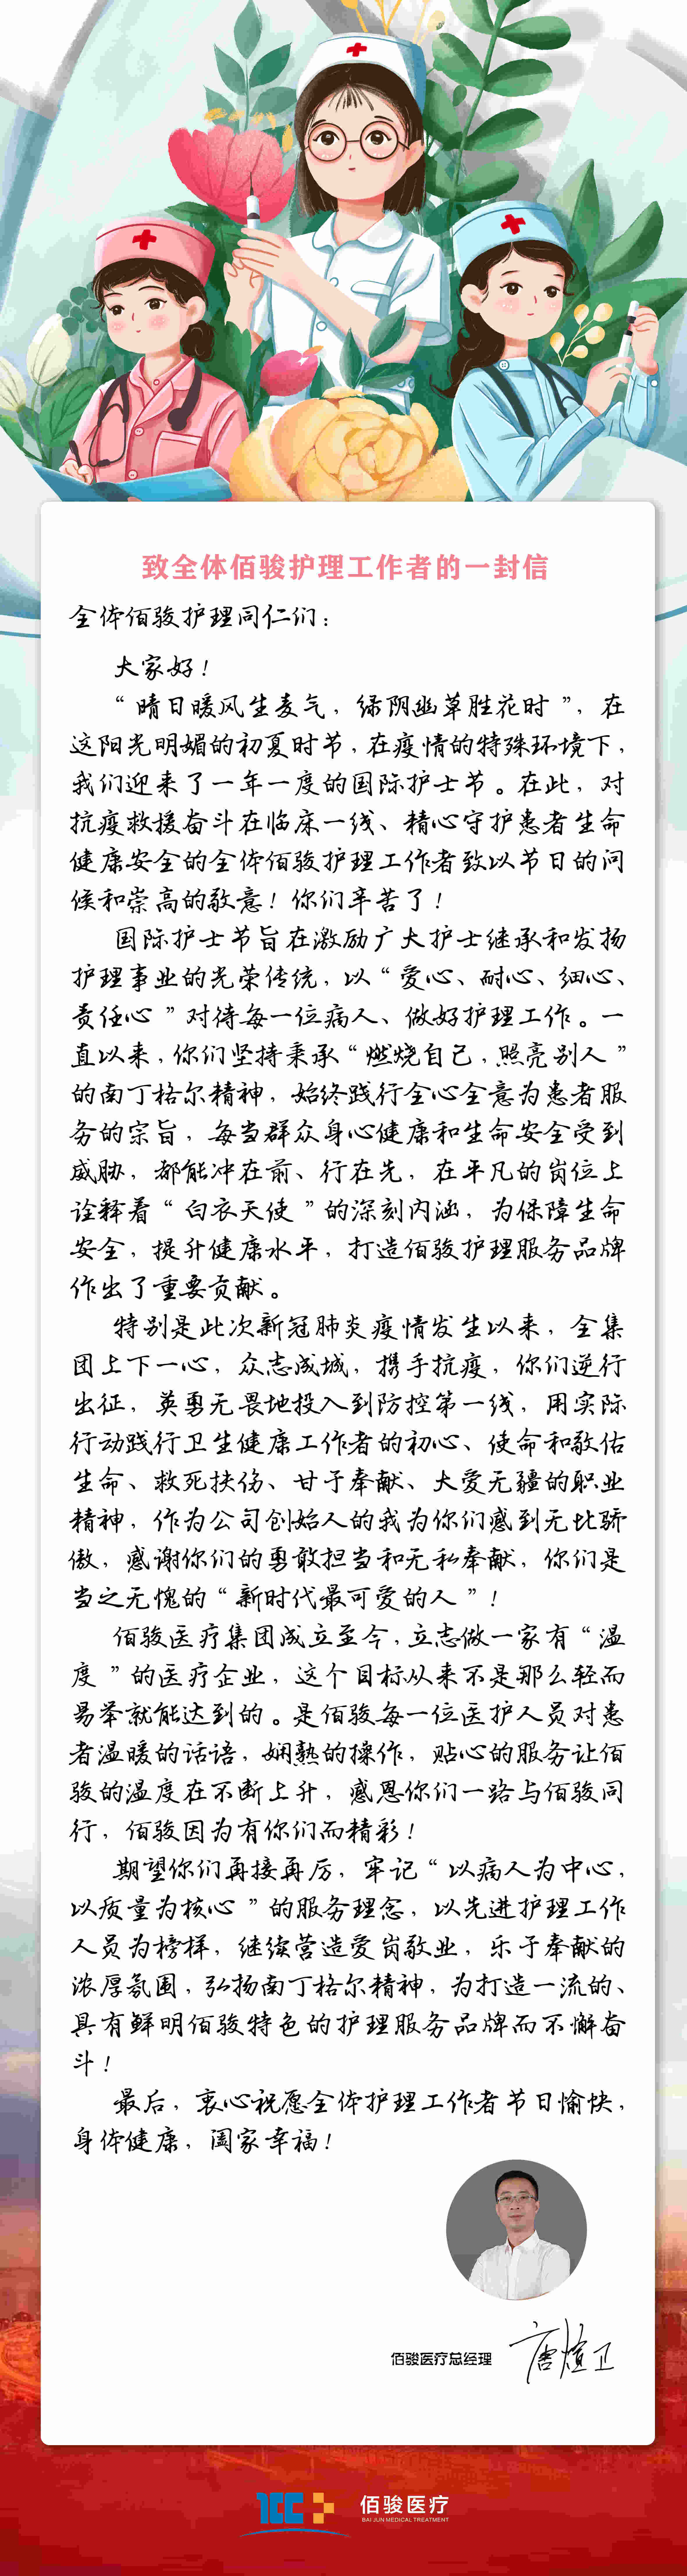 致全体佰骏护理工作者的一封信
全体佰骏护理同仁们：
大家好！
“晴日暖风生麦气，绿阴幽草胜花时”，在
这阳光明媚的初夏时节，在疫情的特殊环境下，
我们迎来了一年一度的国际护士节。在此，对
抗疫救援奋斗在临床一线、精心守护患者生命
健康安全的全体佰骏护理工作者致以节日的问
候和崇高的敬意！你们辛苦了！
国际护士节旨在激励广大护士继承和发扬
护理事业的光荣传统，以“爱心、耐心、细心、
责任心”对待每一位病人、做好护理工作。一
直以来，你们坚持秉承“燃烧自己，照亮别人”
的南丁格尔精神，始终践行全心全意为患者服
务的宗旨，每当群众身心健康和生命安全受到
威胁，都能冲在前、行在先，在平凡的岗位上
诠释着“白衣天使”的深刻内涵，为保障生命
安全，提升健康水平，打造佰骏护理服务品牌
作出了重要贡献。
特别是此次新冠肺炎疫情发生以来，全集
团上下一心，众志成城，携手抗疫，你们逆行
出征，英勇无畏地投入到防控第一线，用实际
行动践行卫生健康工作者的初心、使命和敬佑
生命、救死扶伤、甘于奉献、大爱无疆的职业
精神，作为公司创始人的我为你们感到无比骄
傲，感谢你们的勇敢担当和无私奉献，你们是
当之无愧的“新时代最可爱的人”！
佰骏医疗集团成立至今，立志做一家有“温
度”的医疗企业，这个目标从来不是那么轻而
易举就能达到的。是佰骏每一位医护人员对患
者温暖的话语，娴熟的操作，贴心的服务让佰
骏的温度在不断上升，感恩你们一路与佰骏同
行，佰骏因为有你们而精彩！
期望你们再接再厉，牢记“以病人为中心，
以质量为核心”的服务理念，以先进护理工作
人员为榜样，继续营造爱岗敬业，乐于奉献的
浓厚氛围，弘扬南丁格尔精神，为打造一流的、
具有鲜明佰骏特色的护理服务品牌而不懈奋
斗！
最后，衷心祝愿全体护理工作者节日愉快，
身体健康，阖家幸福！
佰骏医疗总经理 唐煊卫
佰骏医疗
BAI JUN MEDICAL TREATMENT